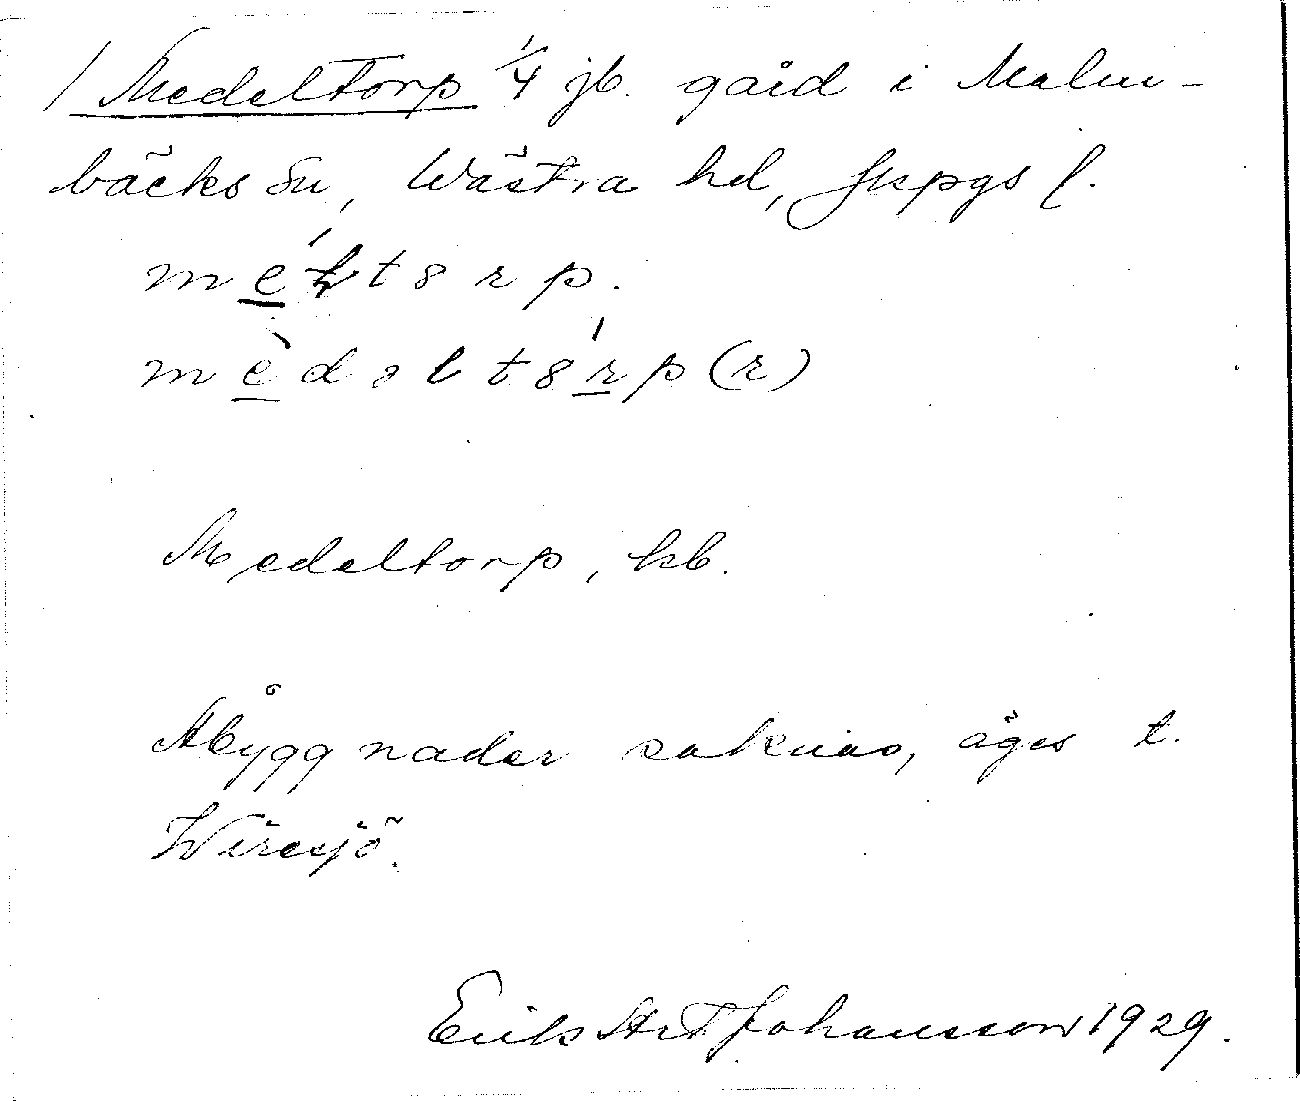 / Medeltorp 1/4 jb. gård i Malm-
bäcks sn, Västra hd, Jkpgs l.
médəltòrp(r)
Medeltorp, kb.
Åbyggnader saknas, äges t.
Wiresjö.
Erik Johansson 1929.